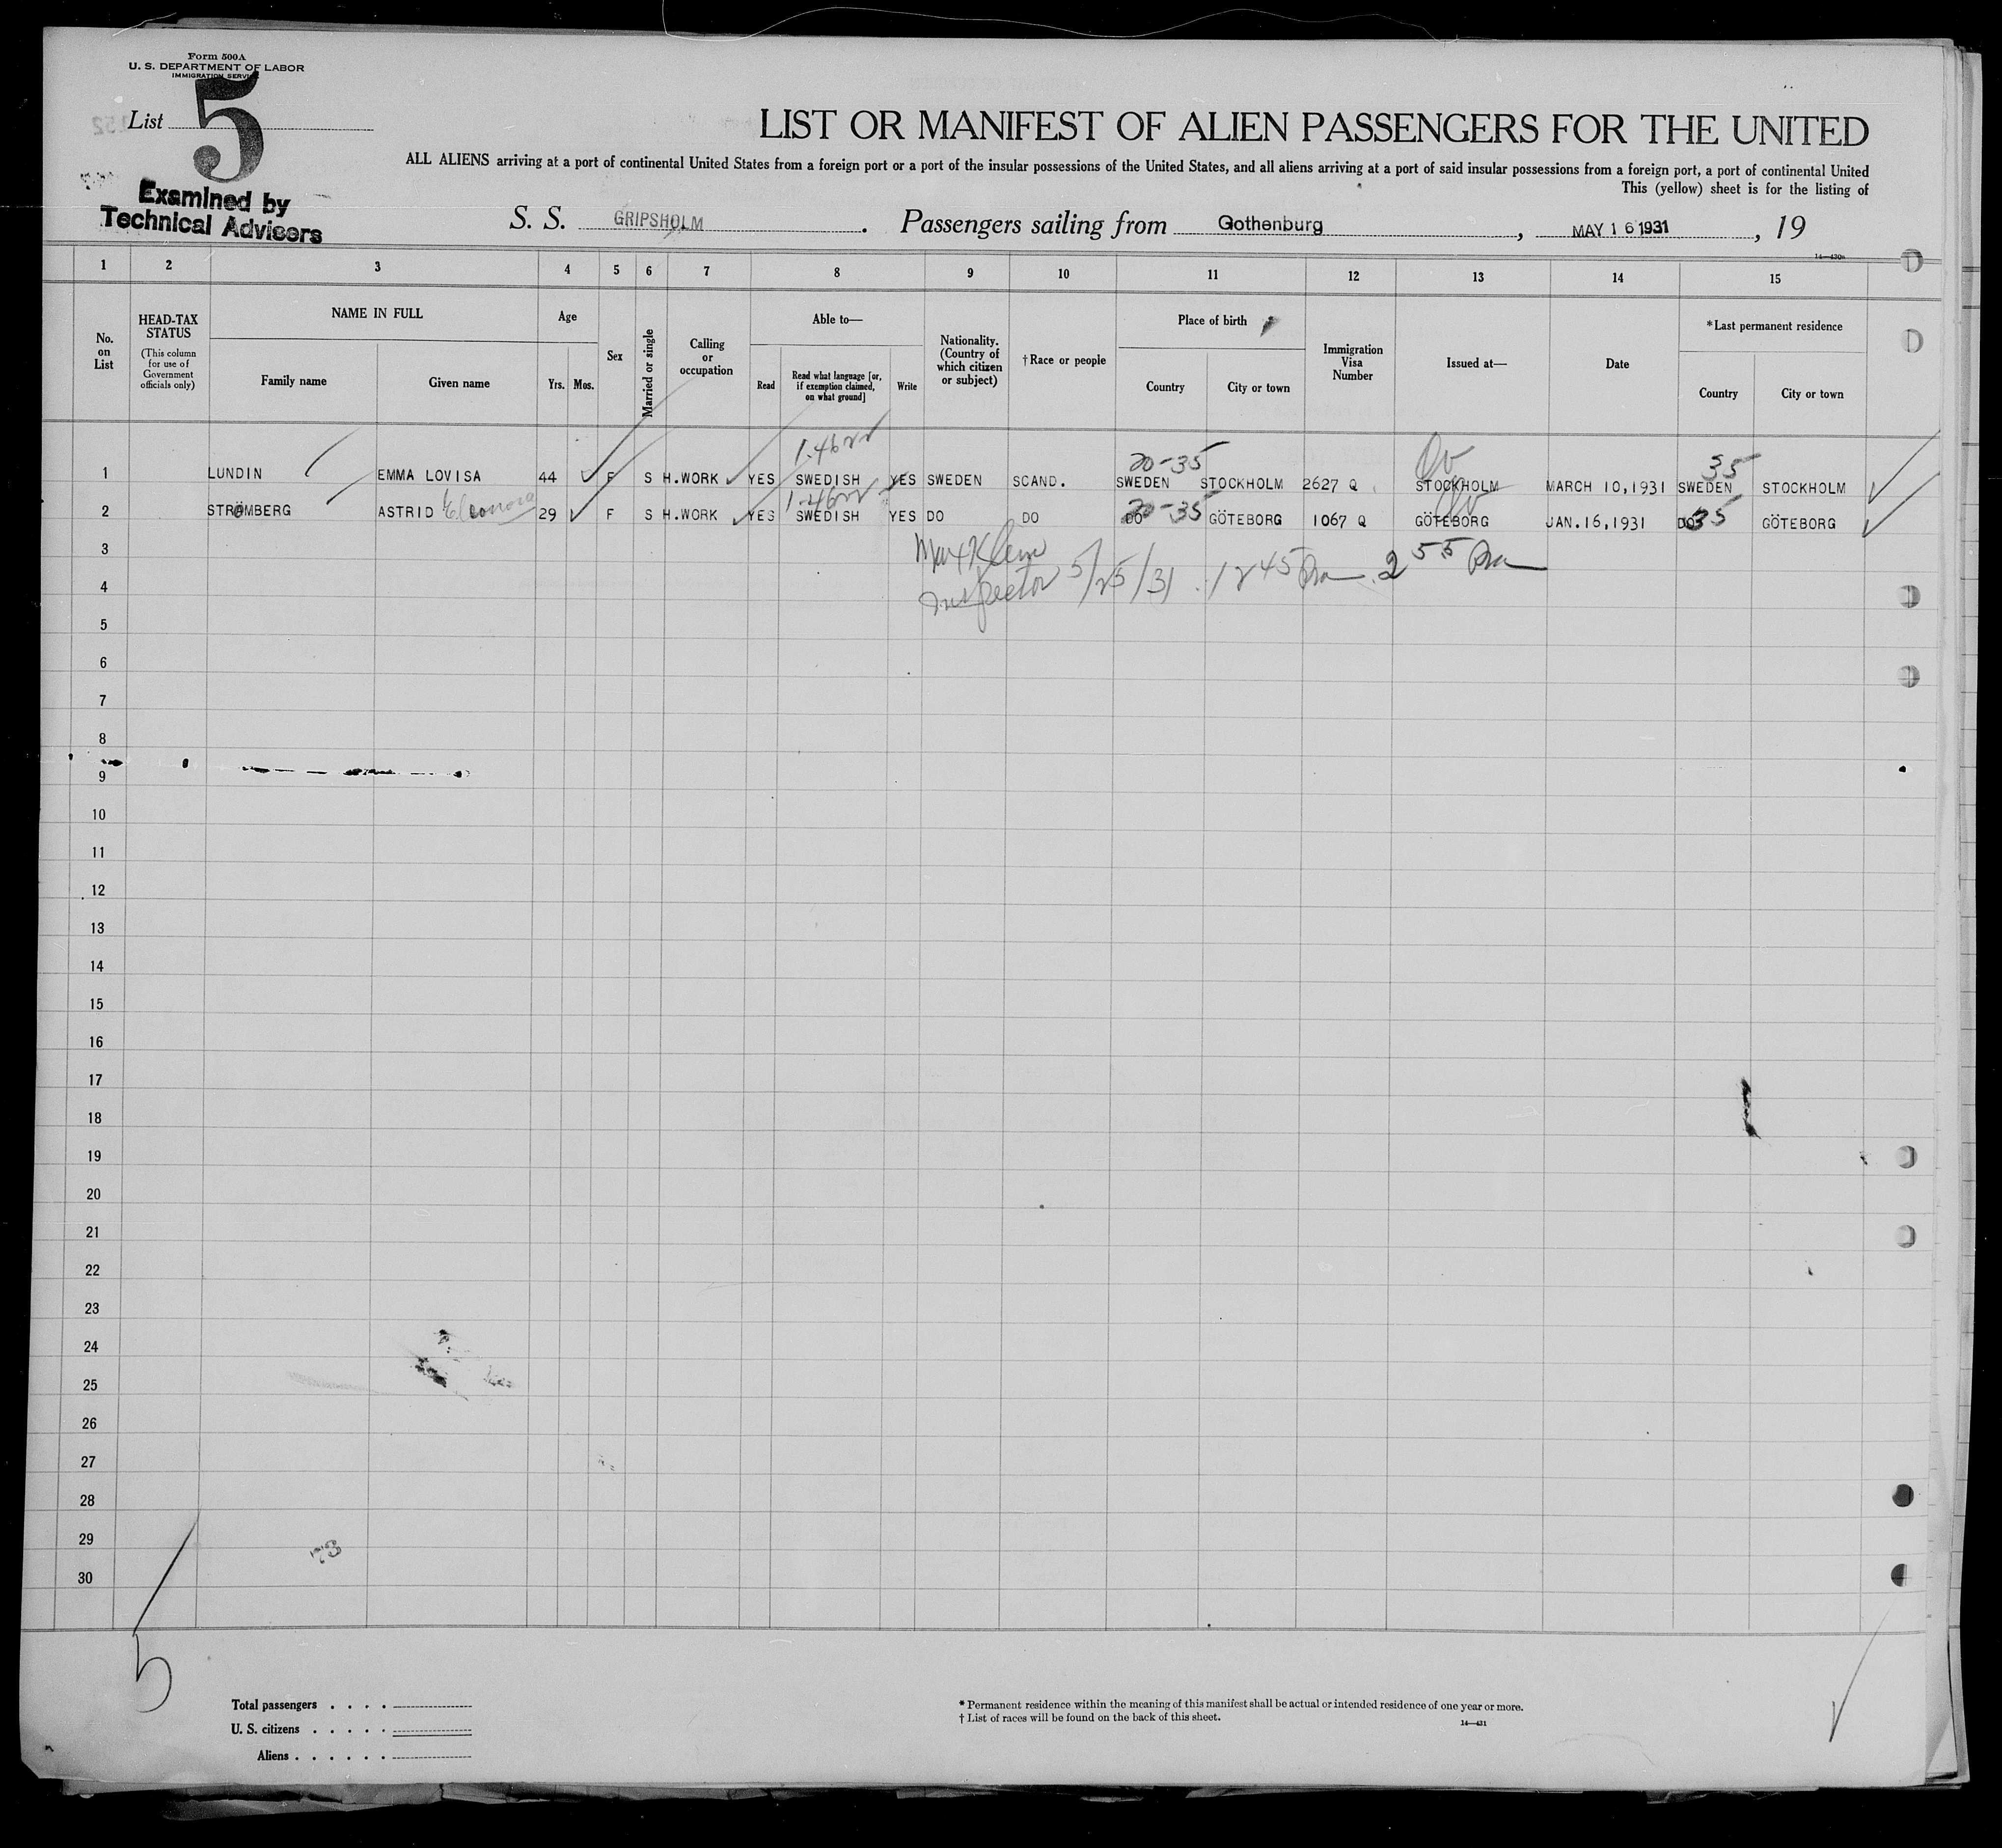 Form 500A
U. S. DEPARTMENT OF LABOR
IMMIGRATION SERVICE
List 5
Examined by
Technical Advisers
LIST OR MANIFEST OF ALIEN PASSENGERS FOR THE UNITED
ALL ALIENS arriving at a port of continental United States from a foreign port or a port of the insular possessions of the United States, and all aliens arriving at a port of said insular possessions from a foreign port, a port of continental United
This (yellow) sheet is for the listing of
S. S. GRIPSHOLM . Passengers sailing from Gothenburg , MAY 16 1931 , 19
14—430a
1 2 3 4 5 6 7 8 9 10 11 12 13 14 15
No. on List
HEAD-TAX STATUS
(This column for use of Government officials only)
NAME IN FULL
Family name
Given name
Age
Yrs. Mos.
Sex
Married or single
Calling or occupation
Able to—
Read
Read what language [or, if exemption claimed, on what ground]
Write
Nationality. (Country of which citizen or subject)
†Race or people
Place of birth
Country
City or town
Immigration Visa Number
Issued at—
Date
*Last permanent residence
Country
City or town
20-35 35
1 LUNDIN EMMA LOVISA 44 F S H.WORK YES SWEDISH YES SWEDEN SCAND. SWEDEN STOCKHOLM 2627 Q STOCKHOLM MARCH 10,1931 SWEDEN STOCKHOLM
2 STRÖMBERG ASTRID Eleonora 29 F S H.WORK YES SWEDISH YES DO DO DO 20-35 GÖTEBORG 1067 Q GÖTEBORG JAN.16,1931 DO 35 GÖTEBORG
3 Max Klein
4 Inspector 5/25/31 1245 Pm 2 55 Pm
5
6
7
8
9
10
11
12
13
14
15
16
17
18
19
20
21
22
23
24
25
26
27
28
29
30
73
5
Total passengers . . . .
U. S. citizens . . . . .
Aliens . . . . . .
* Permanent residence within the meaning of this manifest shall be actual or intended residence of one year or more.
† List of races will be found on the back of this sheet.
14—431